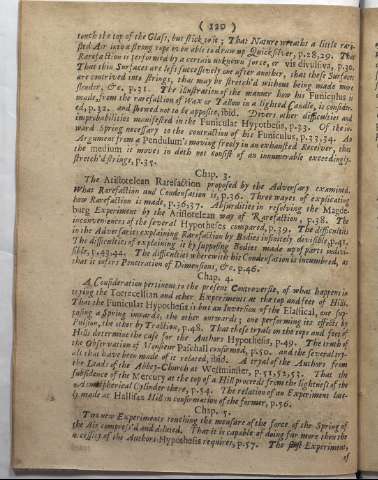 ( 120 )
touch the top of the Glass, but stick to it; That Nature wreaths a little rari-
fied Air into a strong rope to be able to draw up Quicksilver, p.28,29. That
Rarefaction is performed by a certain unknown force, or vis divulsiva, p.30.
That thin Surfaces are left successively one after another, that these Surfaces
are contrived into strings, that may be stretch'd without being made more
slender, &c. p.31. The illustration of the manner how his Funiculus is
made, from the rarefaction of Wax or Tallow in a lighted Candle, is consider-
ed, p.32. and shewed not to be apposite, ibid. Divers other difficulties and
improbabilities manifested in the Funicular Hypothesis, p.33. Of the in-
ward Spring necessary to the contraction of his Funiculus, p.33,34. An
Argument from a Pendulum's moving freely in an exhausted Receiver, that
the medium it moves in doth not consist of an innumerable exceedingly
stretch'd strings, p.35.
Chap. 3.
The Aristotelean Rarefaction proposed by the Adversary examined.
What Rarefaction and Condensation is, p.36. Three wayes of explicating
how Rarefaction is made, p.36,37. Absurdities in resolving the Magde-
burg Experiment by the Aristotelean way of Rarefaction p.38. The
inconveniences of the several Hypotheses compared, p.39. The difficulties
in the Adversaries explaining Rarefaction by Bodies infinitely devisible, p.41.
The difficulties of explaining it by supposing Bodies made up of parts indivi-
sible, p.43,44. The difficulties wherewith his Condensation is incumbred, as
that it infers Penetration of Dimensions, &c. p.46.
Chap. 4.
A Consideration pertinent to the present Controversie, of what happens in
trying the Torricellian and other Experiments at the top and feet of Hills.
That the Funicular Hypothesis is but an inversion of the Elastical, one sup-
posing a Spring inwards, the other outwards; one performing its effects by
Pulsion, the other by Traction, p.48. That these tryals on the tops and feet of
Hills determine the case for the Authors Hypothesis, p.49. The truth of
the Observation of Monsieur Paschall confirmed, p.50. and the several try-
als that have been made of it related, ibid. A tryal of the Authors from
the Leads of the Abby-Church at Westminster, p.51,52,53. That the
subsidence of the Mercury at the top of a Hill proceeds from the lightness of the
Atmospherical Cylinder there, p.54. The relation of an Experiment late-
ly made at Hallifax Hill in confirmation of the former, p.56.
Chap. 5.
Two new Experiments touching the measure of the force of the Spring of
the Air compress'd and dilated. That it is capable of doing far more then the
necessity of the Authors Hypothesis requires, p.57. The first Experiment,
of